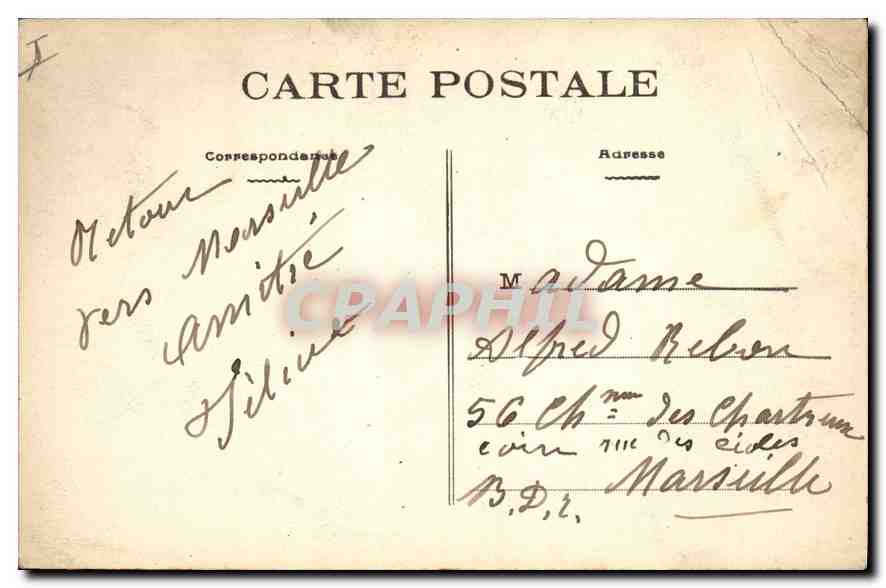 I
CARTE POSTALE
Correspondance
Retour
vers Marseille
Amitié
Adresse
Madame
Alfred
56 Ch.nm des Chartreux
coin rue des écoles
Marseille
B.D.r.
CPARPHIL